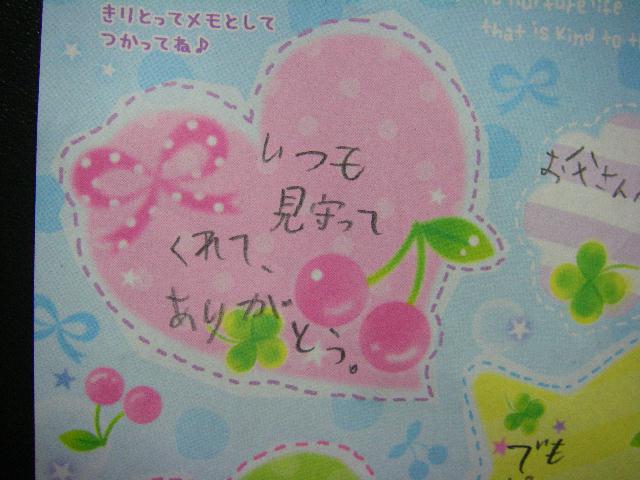 きりとってメモとして
つかってね♪
to nurture life
that is kind to t
いつも
見守って
くれて、
ありがとう。
お父さん
でも